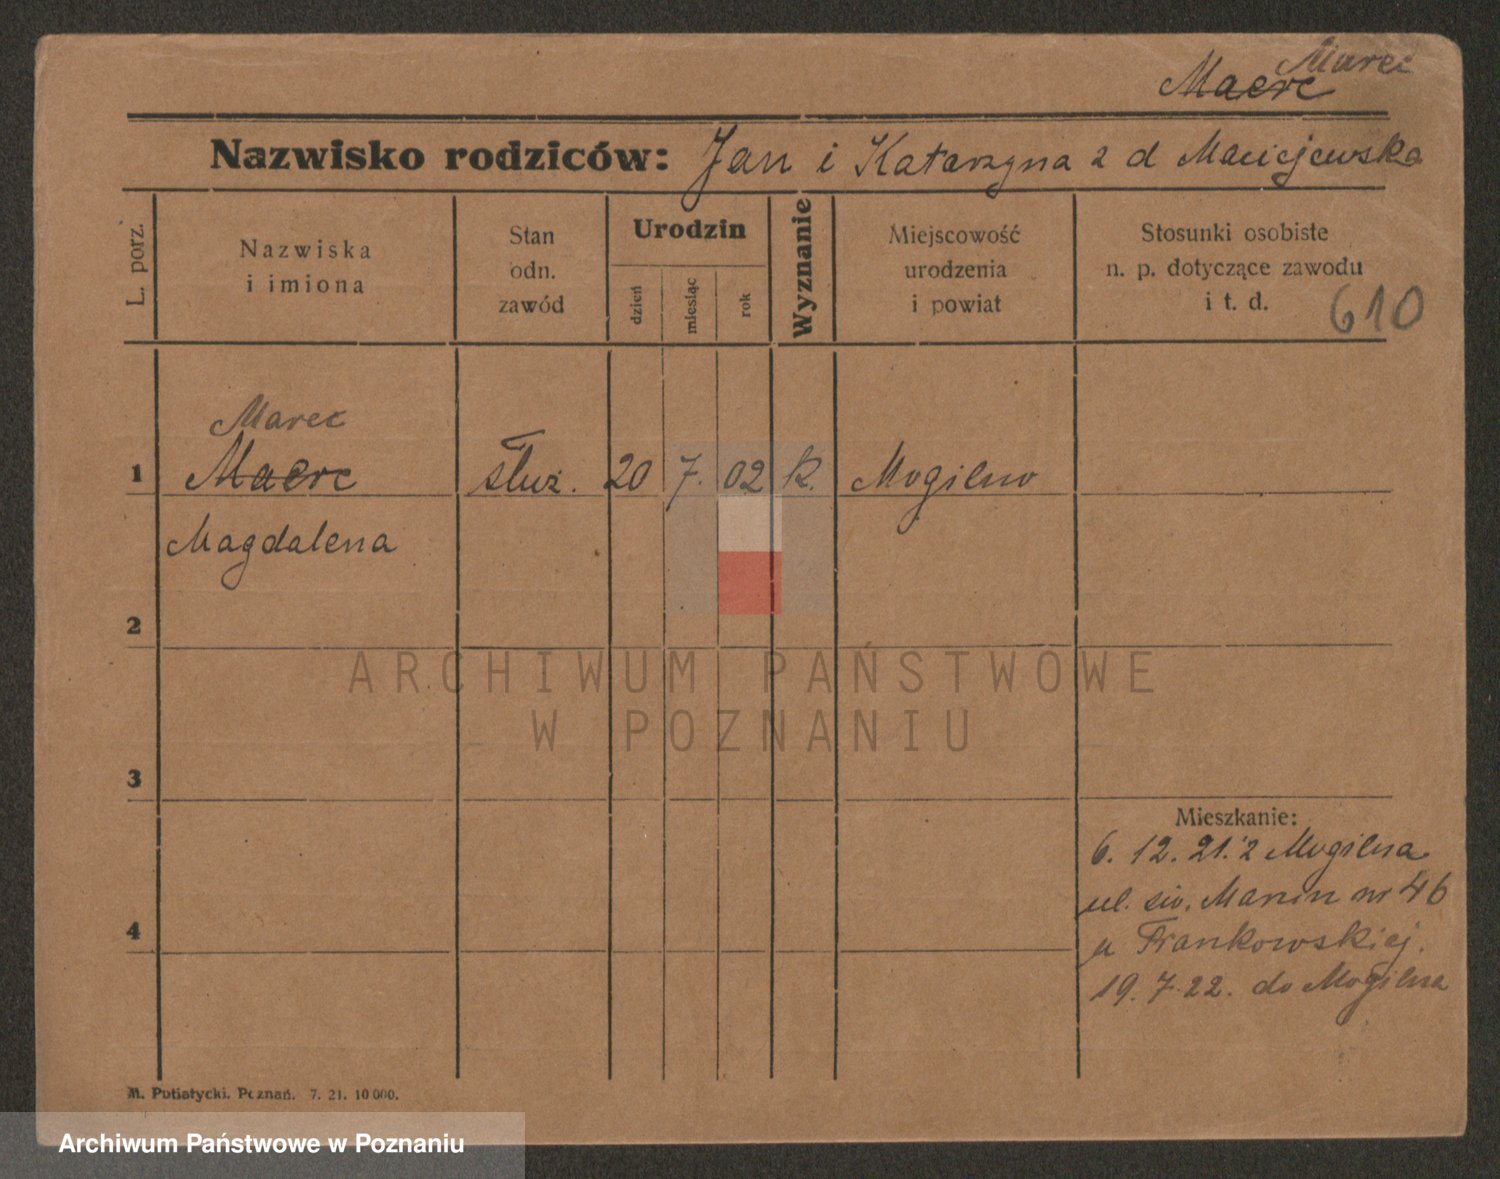 Marec
Macrc
Nazwisko rodziców: Jan i Katarzyna z d Maciejewska
L. porz.
Nazwiska
i imiona
Stan
odn.
zawód
Urodzin
dzień
miesiąc
rok
Wyznanie
Miejscowość
urodzenia
i powiat
Stosunki osobiste
n. p. dotyczące zawodu
i t. d.
610
Marec
1 Macrc służ. 20 7. 02 k. Mogilno
Magdalena
2
ARCHIWUM PAŃSTWOWE
W POZNANIU
3
Mieszkanie:
6. 12. 21. z Mogilna
ul. św. Marcin nr 46
4
u Frankowskiej.
19. 7. 22. do Mogilna
M. Putiatycki. Poznań. 7. 21. 10 000.
Archiwum Państwowe w Poznaniu